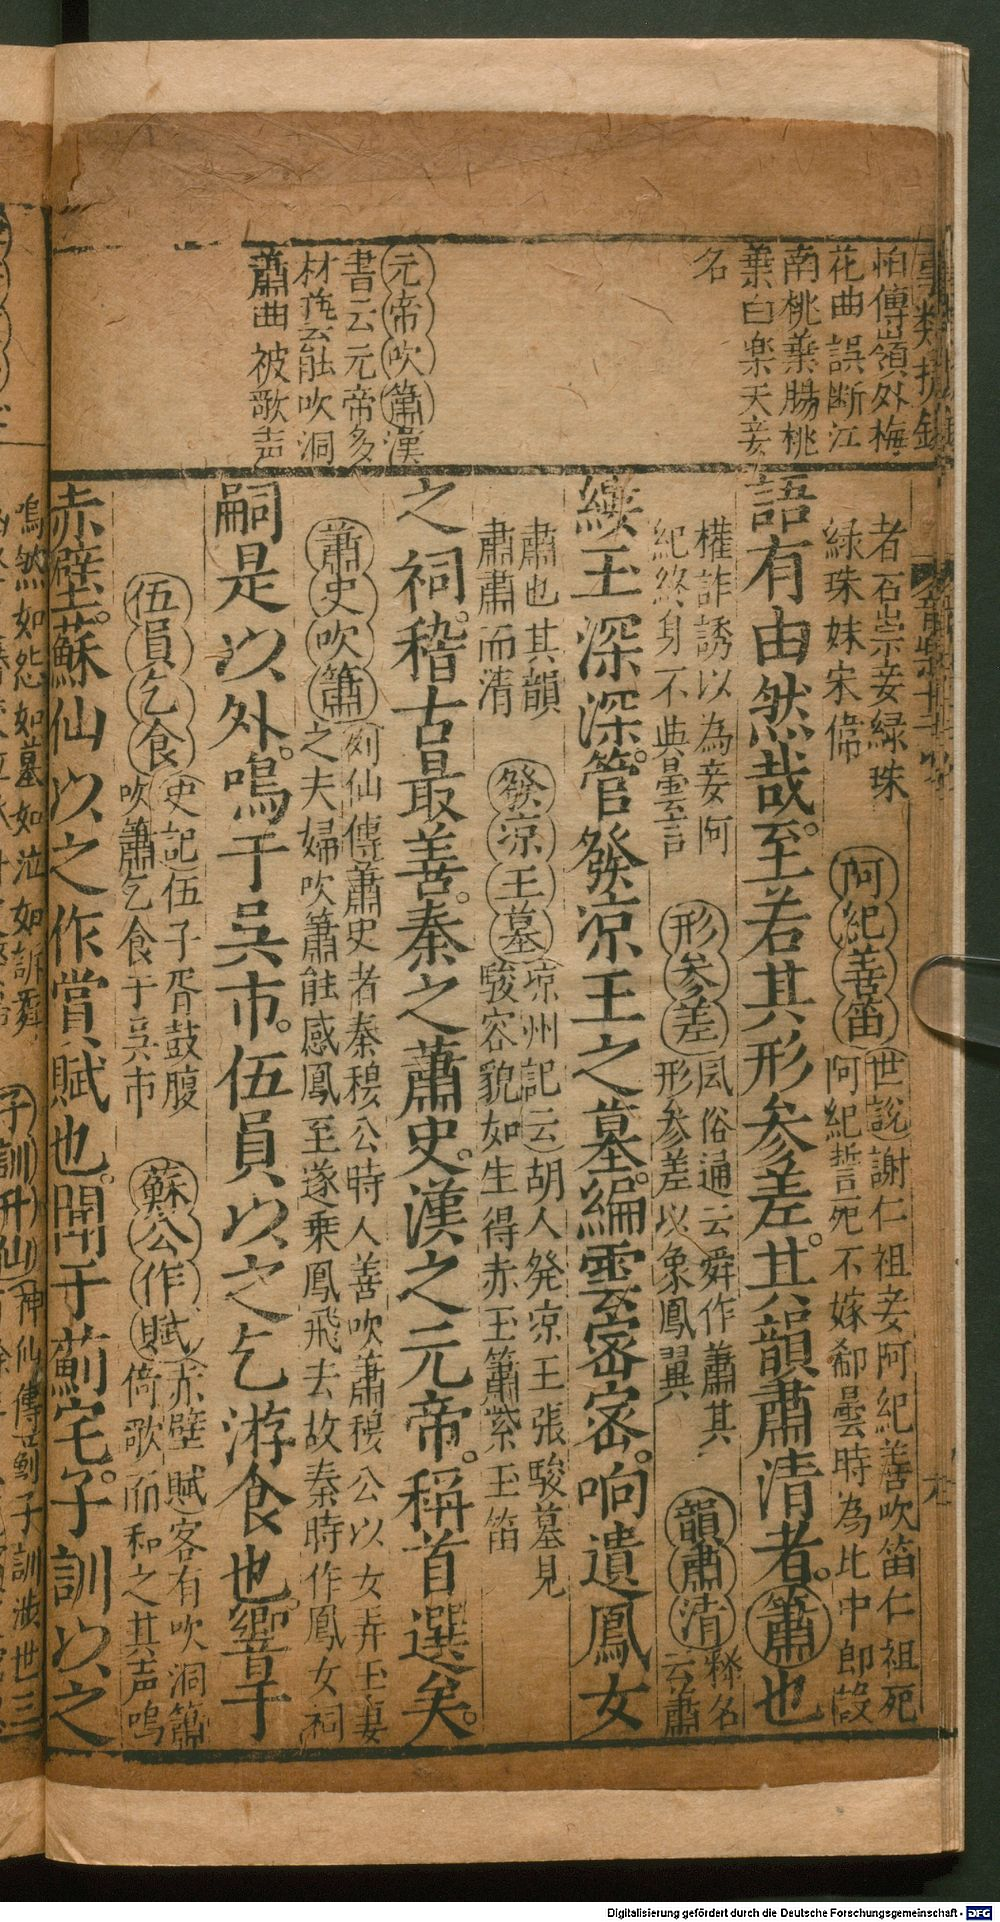 怕傳嶺外梅
花曲誤断江
南桃葉腸桃
葉白楽天妾
名
元帝吹簫漢
書云元帝多
材芸能吹洞
簫曲被歌声
者石崇妾緑珠
緑珠妹宋偉
阿紀善笛
世說謝仁祖妾阿紀善吹笛仁祖死
阿紀誓死不嫁郗曇時為比中郎設
語有由然哉。至若其形参差。其韻肅清者。簫也
權詐誘以為妾阿
紀終身不與曇言
形参差
風俗通云舜作簫其
形参差以象鳳翼
韻肅清
釋名云蕭
玉深深。管發涼王之墓。編雲密密。响遺鳳女
肅也其韻
肅肅而清
發涼王墓
凉州記云胡人発凉王張駿墓見
駿容貌如生得赤玉簫紫玉笛
之祠。稽古最善。秦之蕭史。漢之元帝。稱首選矣。
蕭史吹簫
列仙傳蕭史者秦穆公時人善吹簫穆公以女弄玉妻
之夫婦吹簫能感鳳至遂乗鳳飛去故秦時作鳳女祠
嗣是以外。鳴于吳市。伍員以之乞游食也。響于
伍員乞食
史記伍子胥鼓腹
吹簫乞食于吳市
蘇公作賦
赤壁賦客有吹洞簫
倚歌而和之其声嗚
赤壁。蘇仙以之作賞賦也。聞于薊宅。子訓以之
嗚然如怨如慕如泣如訴舞
子訓升仙
神仙傳薊子訓
世三
Digitalisierung gefördert durch die Deutsche Forschungsgemeinschaft - DFG